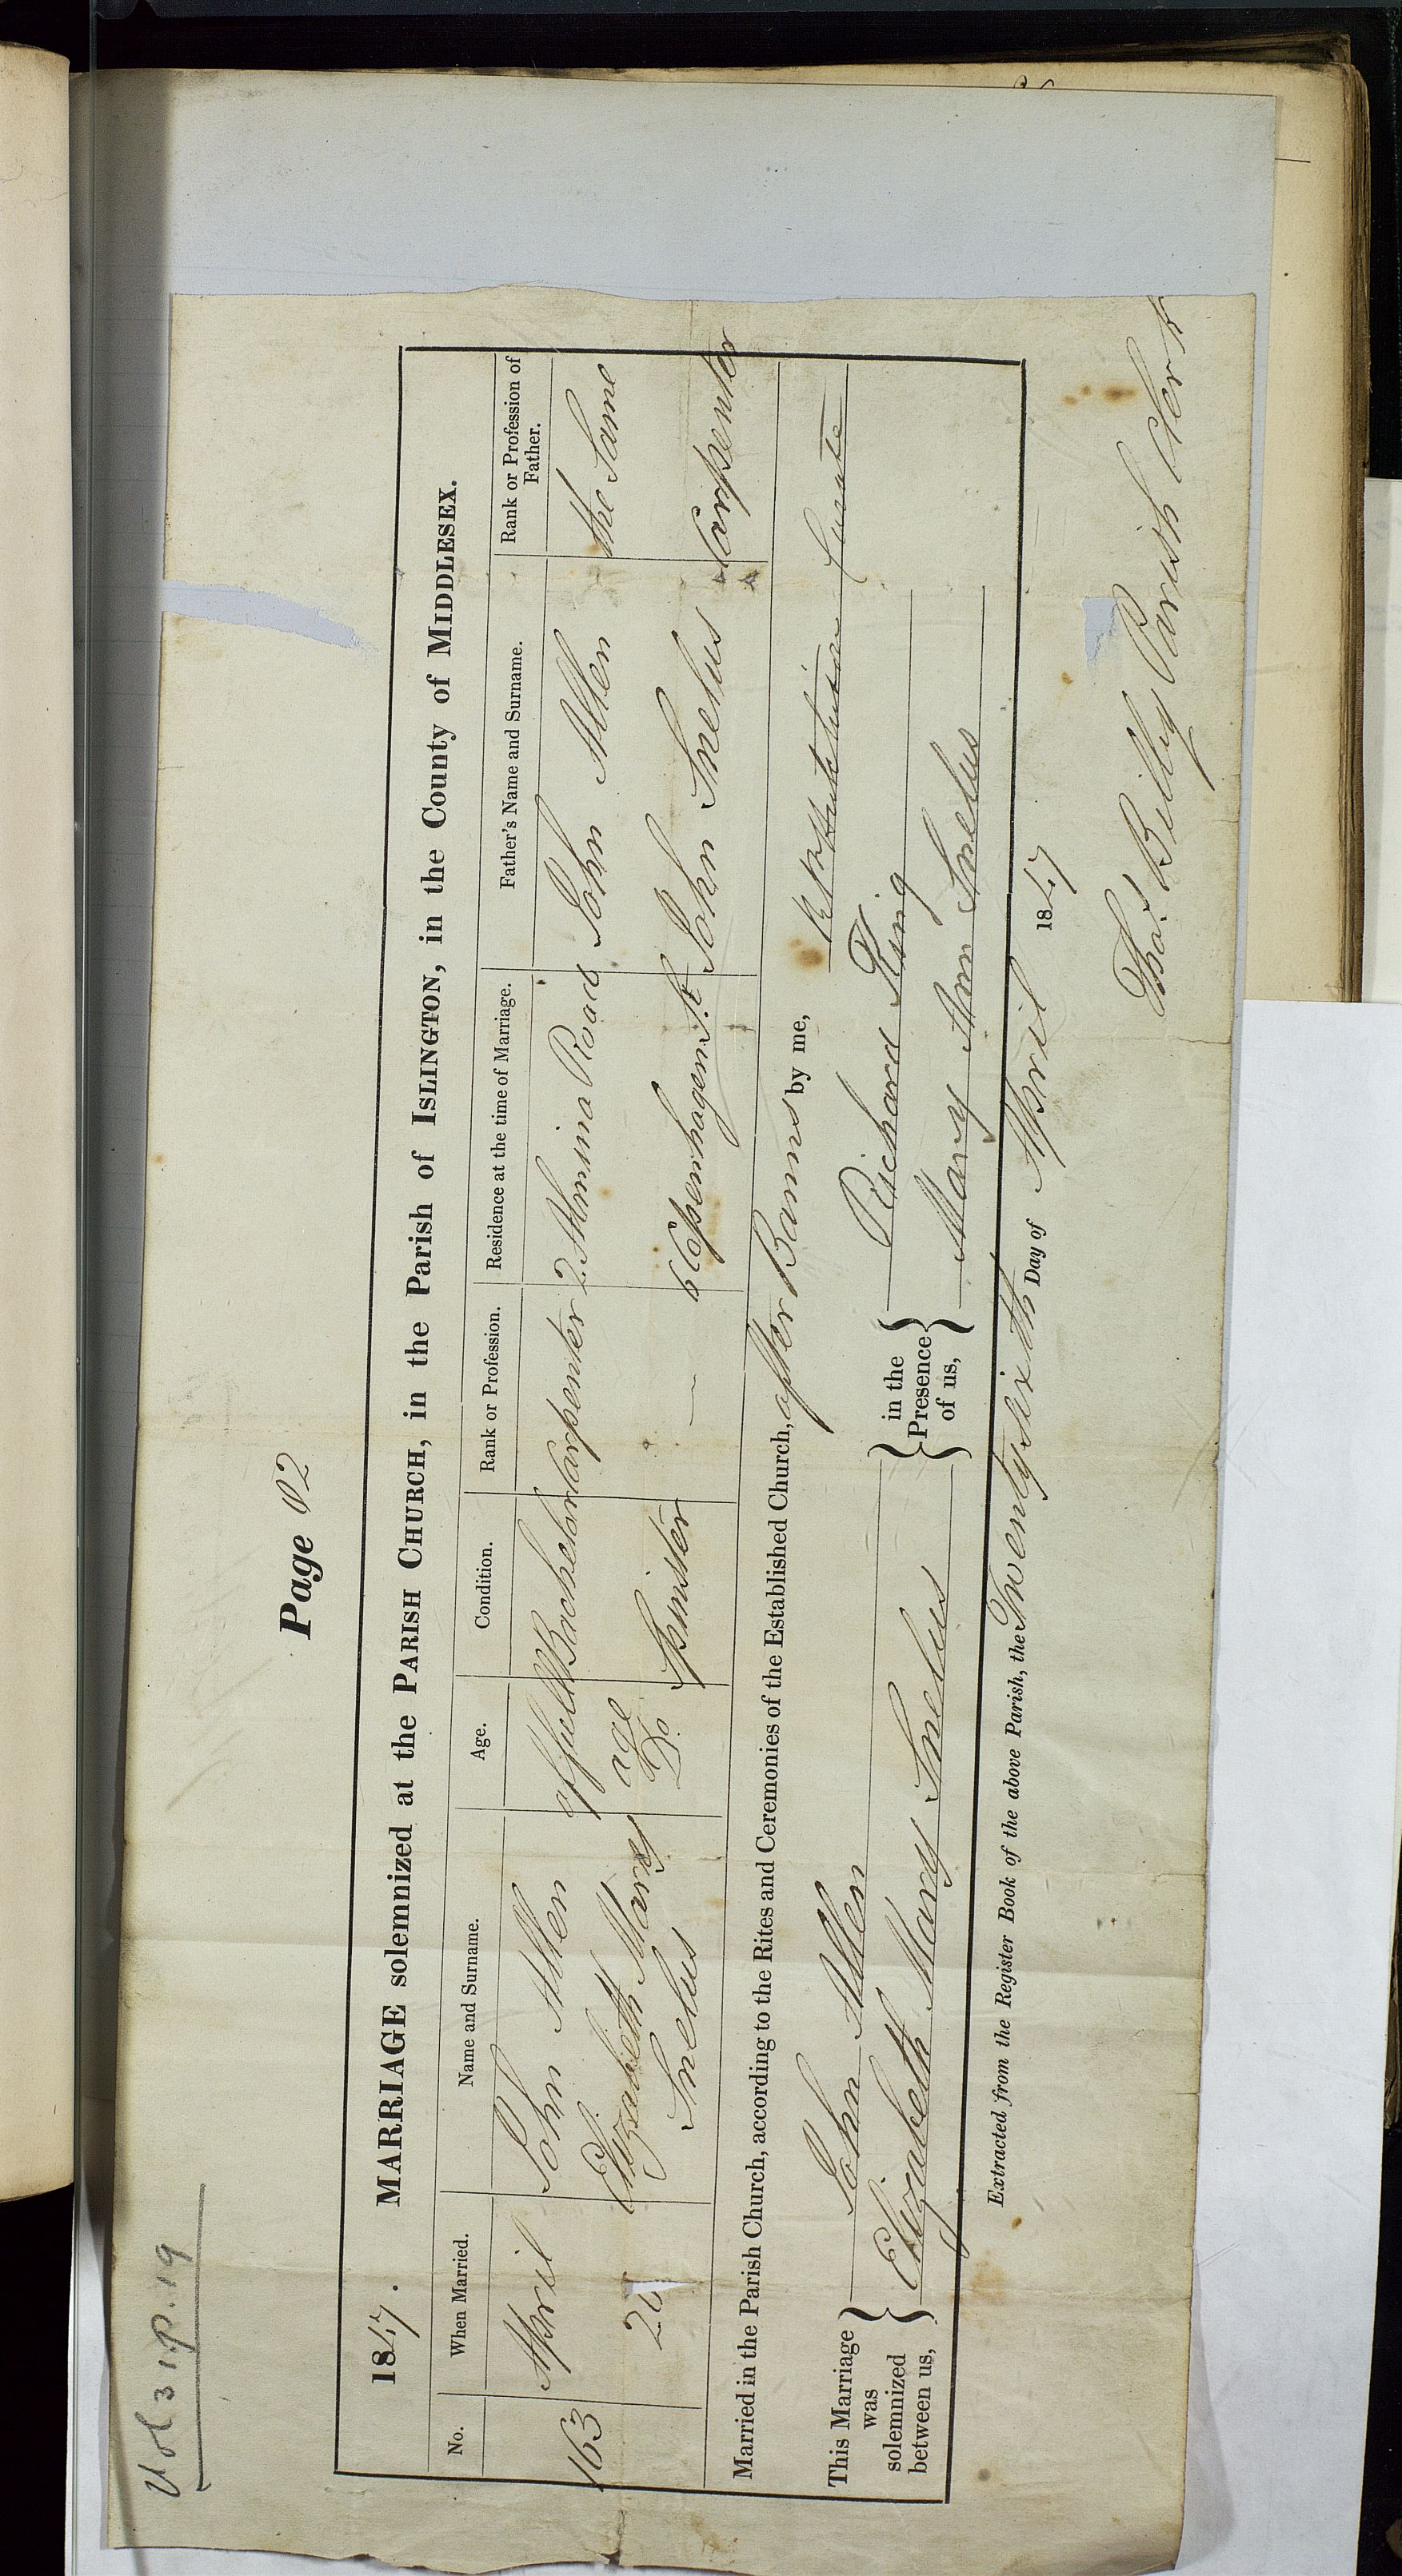 Vol 31 p. 19
Page 82
1847. MARRIAGE solemnized at the PARISH CHURCH, in the Parish of ISLINGTON, in the County of MIDDLESEX.
No. When Married. Name and Surname. Age. Condition. Rank or Profession. Residence at the time of Marriage. Father's Name and Surname. Rank or Profession of Father.
163 April John Allen of full Bachelor Carpenter 2. Almina Road John Allen the Same
age
Elizabeth Mary Do. Spinster — 6 Copenhagen St. John Snelus Carpenter
Snelus
Married in the Parish Church, according to the Rites and Ceremonies of the Established Church, after Banns by me, Curate
This Marriage was solemnized between us, John Allen Elizabeth Mary Snelus
in the Presence of us, Richard King Mary Ann Snelus
Extracted from the Register Book of the above Parish, the Twenty sixth Day of April 1847
Thos. Bilby Parish Clerk